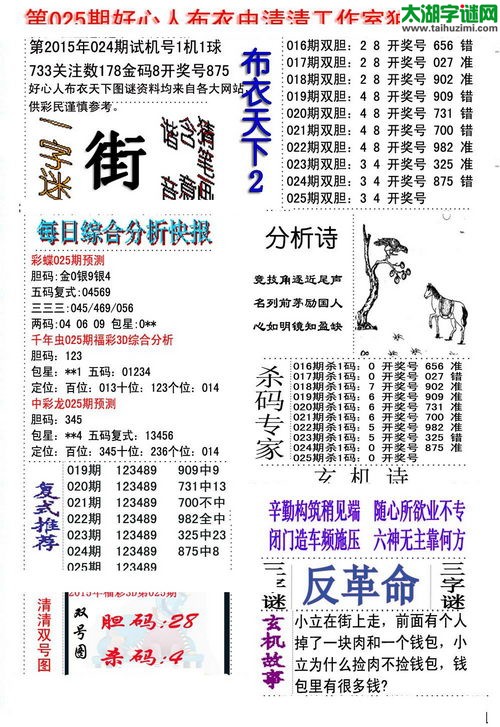 第025期好心人布衣虫清清工作室
太湖字谜网
www.taihuzimi.com
第2015年024期试机号1机1球
733关注数178金码8开奖号875
好心人布衣天下图谜资料均来自各大网站,
供彩民谨慎参考。
一字迷
街
布衣天下2
016期双胆: 2 8 开奖号 656 错
017期双胆: 2 8 开奖号 027 准
018期双胆: 2 8 开奖号 902 准
019期双胆: 4 9 开奖号 909 准
020期双胆: 4 9 开奖号 731 错
021期双胆: 4 9 开奖号 700 错
022期双胆: 4 9 开奖号 982 准
023期双胆: 3 4 开奖号 325 准
024期双胆: 3 4 开奖号 875 错
025期双胆: 3 4
每日综合分析快报
彩蝶025期预测
胆码:金0银9银4
五码复式:04569
三三三:045/469/056
两码:04 06 09 包星:0**
千年虫025期福彩3D综合分析
胆码:123
包星:**1 五码:01234
定位:百位:013十位:123个位:014
中彩龙025期预测
胆码:345
包星:**4 五码:13456
定位:百位:345十位:236个位:014
分析诗
竞技角逐近尾声
名列前茅励国人
心如明镜知盈缺
杀码专家
016期杀1码: 0 开奖号 656 准
017期杀1码: 0 开奖号 027 错
018期杀1码: 7 开奖号 902 准
019期杀1码: 6 开奖号 909 准
020期杀1码: 6 开奖号 731 准
021期杀1码: 6 开奖号 700 准
022期杀1码: 5 开奖号 982 准
023期杀1码: 5 开奖号 325 错
024期杀1码: 0 开奖号 875 准
025期杀1码: 0
玄机诗
辛勤构筑稍见端 随心所欲业不专
闭门造车频施压 六神无主靠何方
复式推荐
019期 123489 909中9
020期 123489 731中13
021期 123489 700不中
022期 123489 982全中
023期 123489 325中23
024期 123489 875中8
025期 123489
三字谜
反革命
三字谜
清清双号图
2015年福彩3D第025期
双号图
胆码:28
杀码:4
玄机故事
小立在街上走,前面有个人
掉了一块肉和一个钱包,小
立为什么捡肉不捡钱包,钱
包里有很多钱?